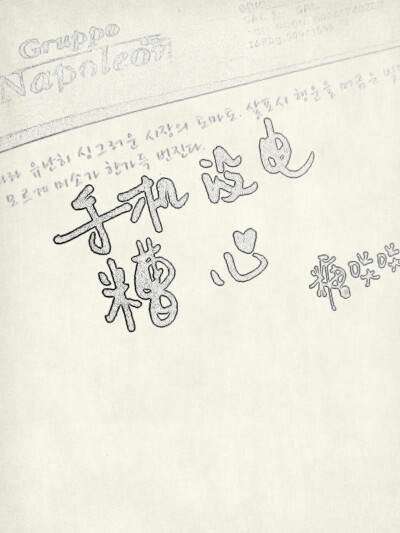 Gruppo
Napoleon
유난히 싱그러운 시장의 토마토. 살포시 행운을 머금은
모르게 미소가 한가득 번진다.
手机没电
糟心
糖